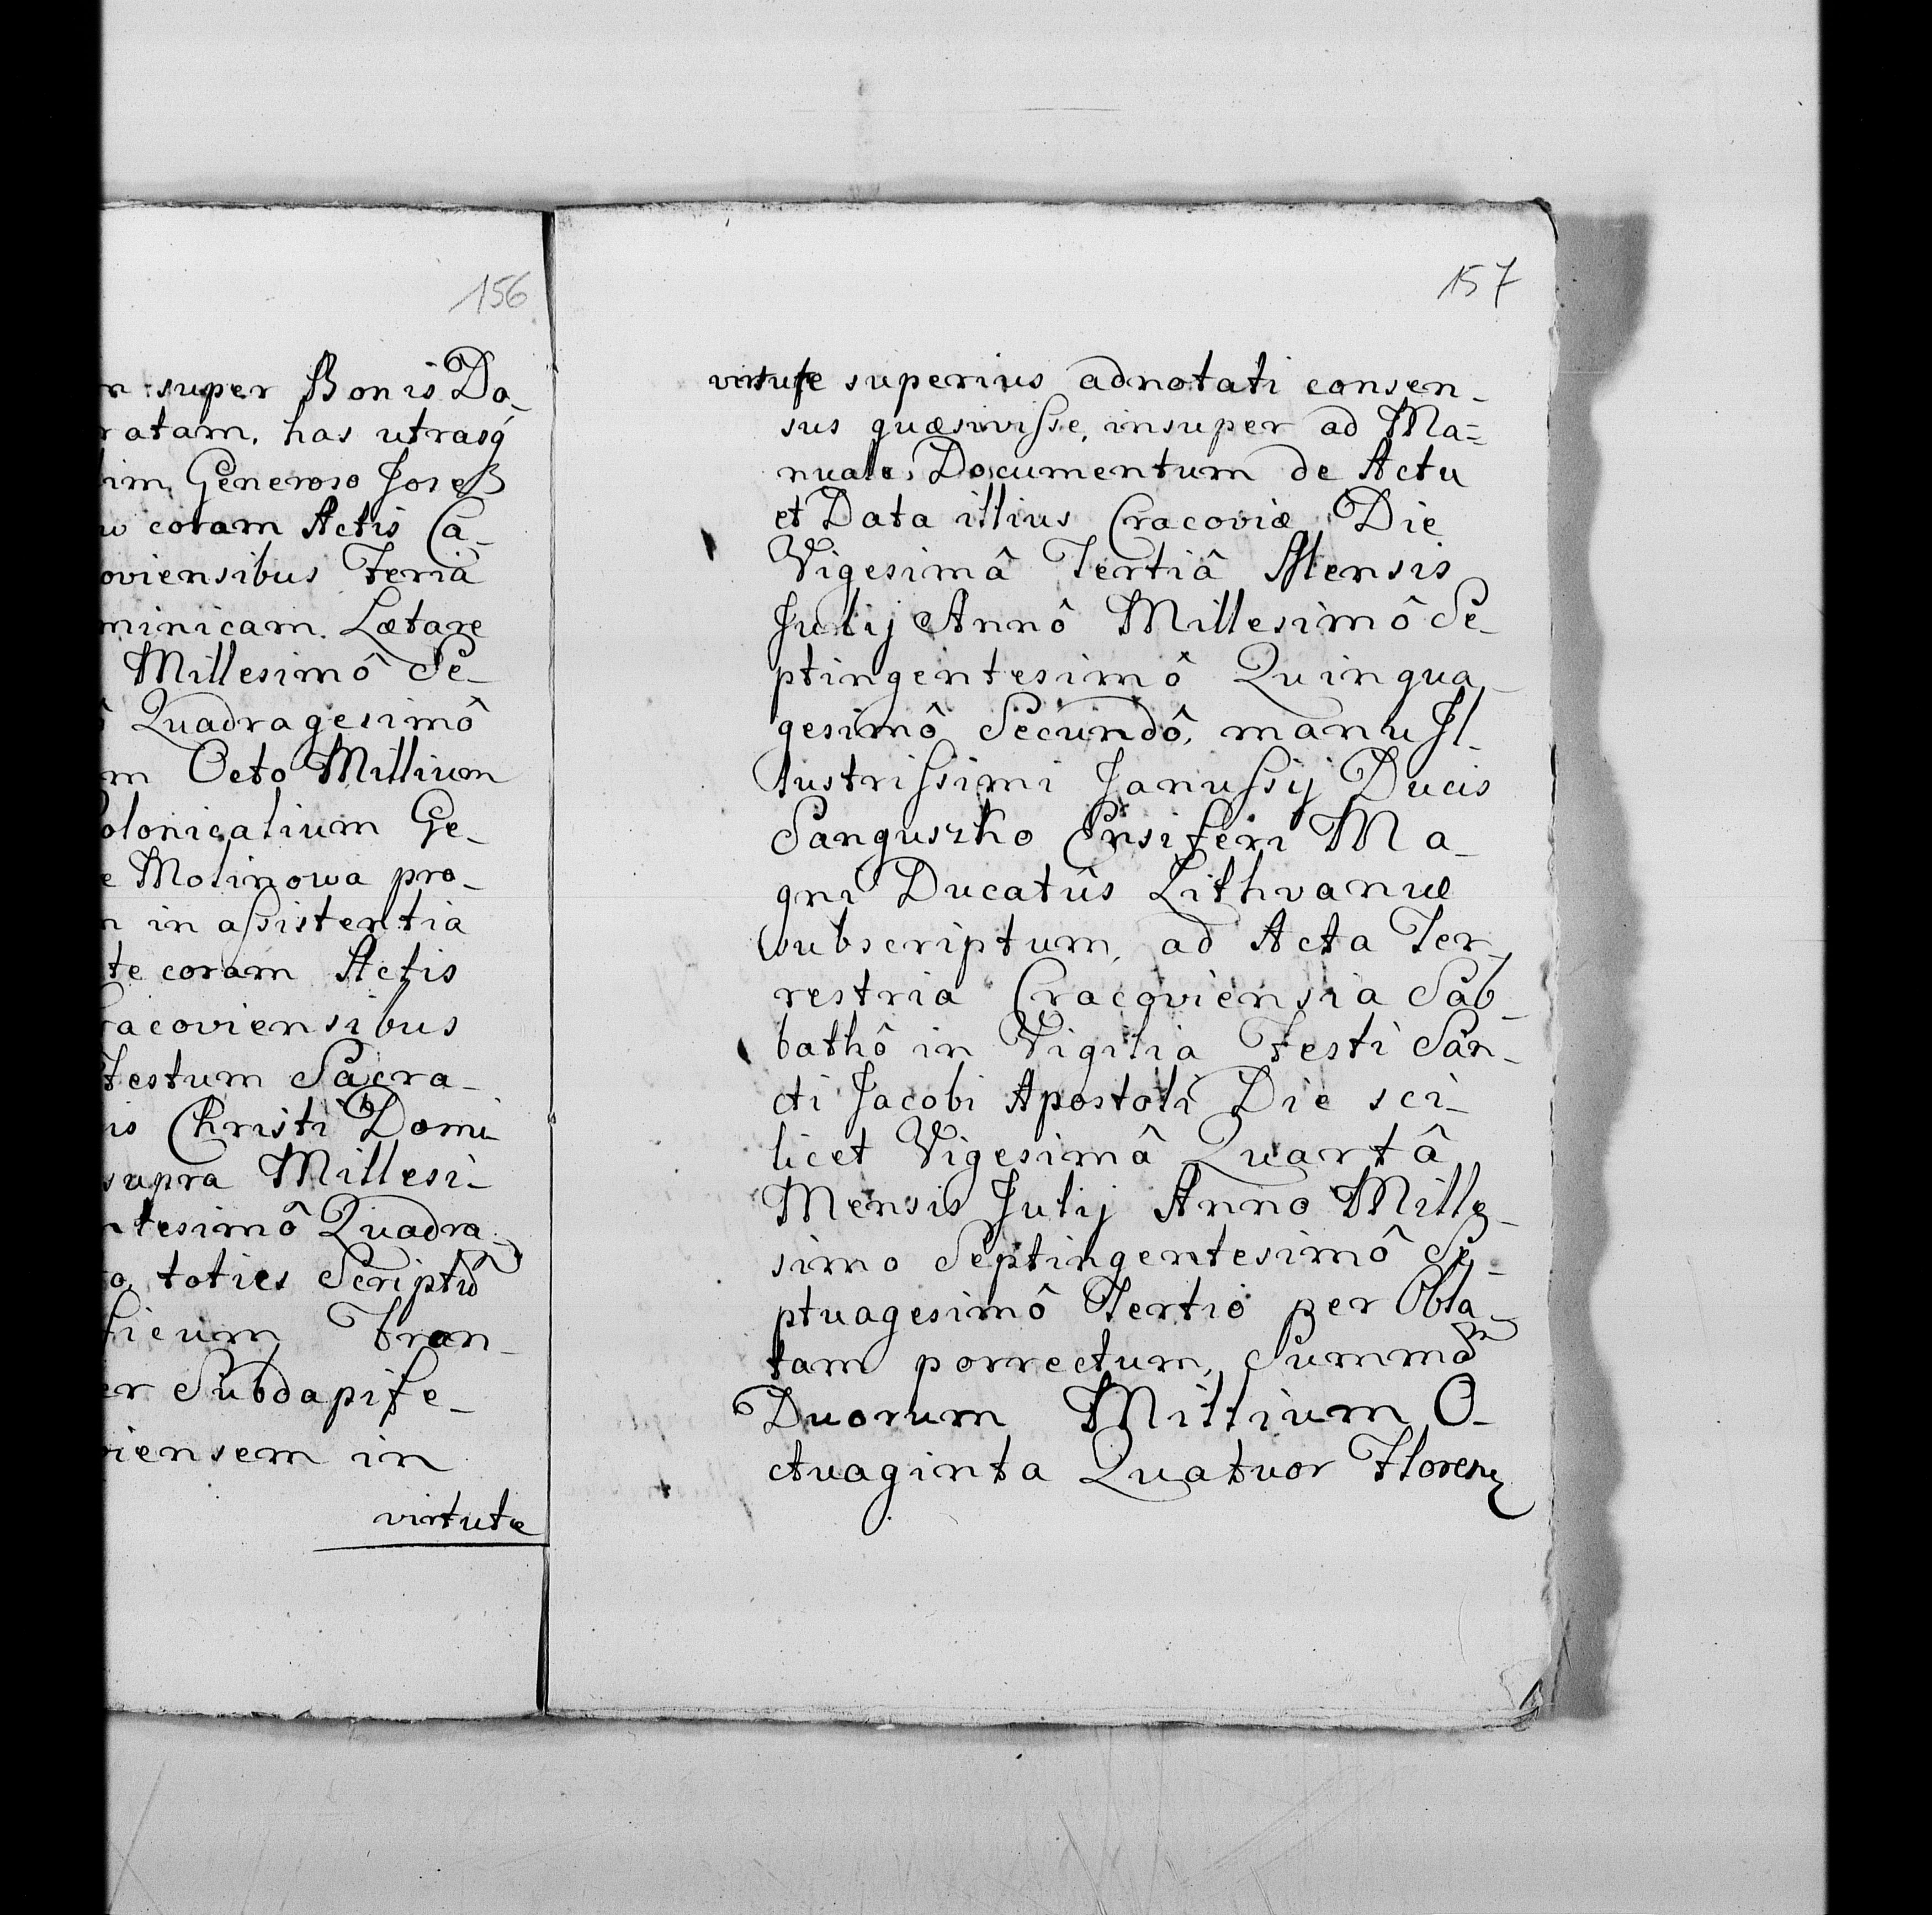 156
n super Bonis Do-
ratam, has utrasq́
im, Generoso Joseß
u coram Actis Ca-
oviensibus Feria
minicam Lætare
Millesimô Se-
ô Quadragesimô
m Octo Millium
olonicalium Ge-
e Molinowa pro-
n in assistentia
te coram Actis
racoviensibus
Festum Sacra-
is Christi Domi-
supra Millesi-
ntesimô Quadra-
o, toties Scriptũ
ticum, Fran-
er Subdapife-
viensem in
virtute
157
virtute superius adnotati consen-
sus quæsivisse, insuper ad Ma=
nuale, Documentum de Actu
et Data illius Cracoviæ Die
Vigesimâ Tertiâ Mensis
Julij Annô Millesimô Se-
ptingentesimô Quinqua-
gesimô Secundô, manu Il-
lustrissimi Janussij Ducis
Sanguszko Ensiferi Ma-
gni Ducatûs Lithvaniæ
subscriptum, ad Acta Ter-
restria Cracoviensia Sab-
bathô in Vigilia Festi San-
cti Jacobi Apostoli Die sci-
licet Vigesimâ Quartâ
Mensis Julij Anno Mille-
simo Septingentesimô Se-
ptuagesimô Tertio per Obla-
tam porrectum, Summã
Duorum Millium O-
ctuaginta Quatuor Floren